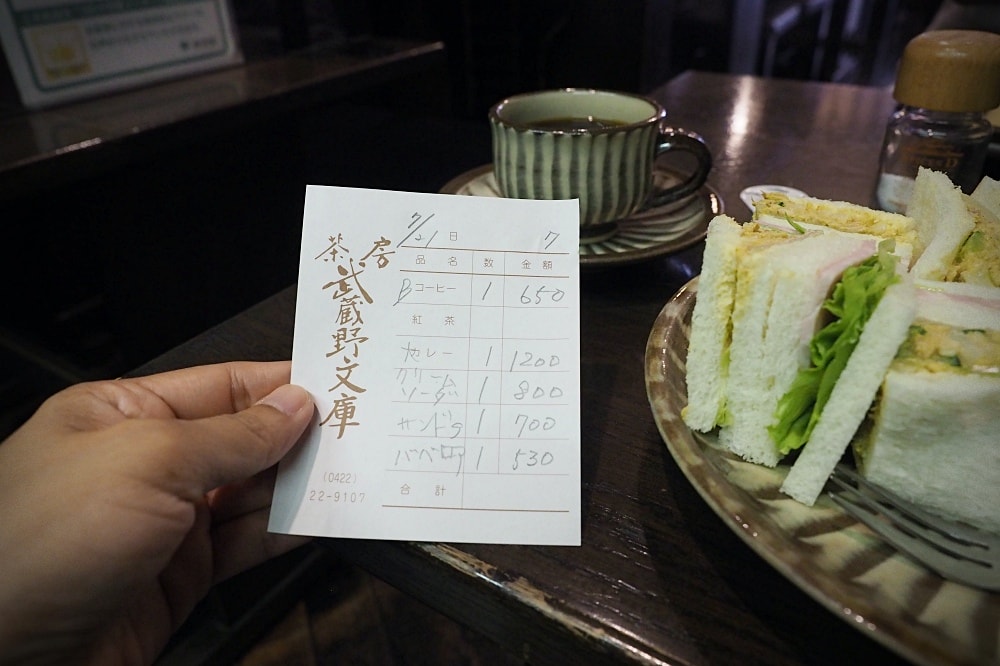 茶房
武蔵野文庫
(0422)
22-9107
7/21 日 7
品名 数 金額
Bコーヒー 1 650
紅茶
カレー 1 1200
クリーム
ソーダ 1 800
サンド 1 700
ババロア 1 530
合計